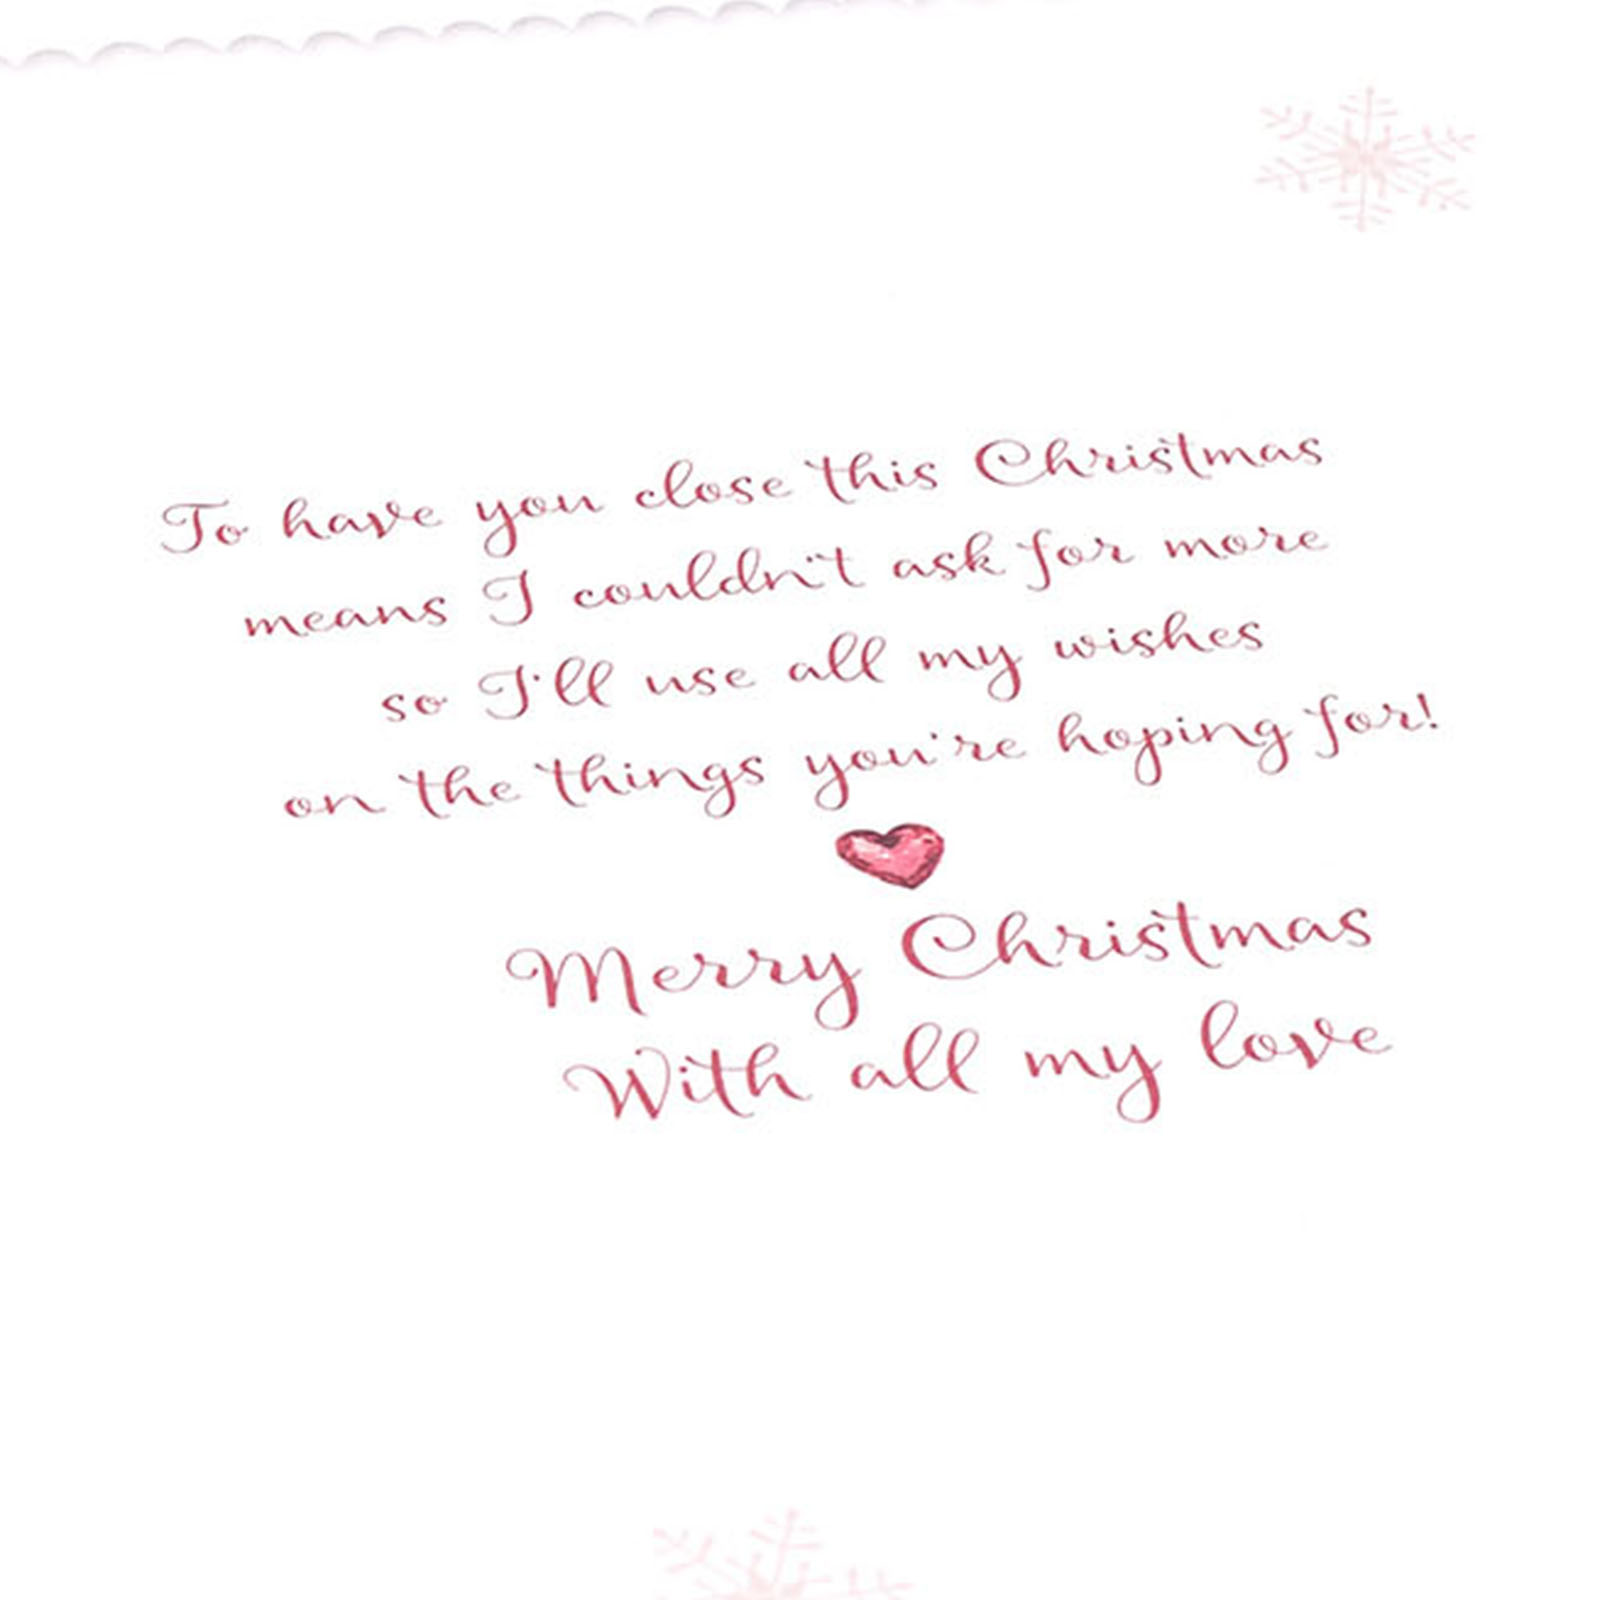 To have you close this Christmas
means I couldn't ask for more
so I'll use all my wishes
on the things you're hoping for!
Merry Christmas
With all my love